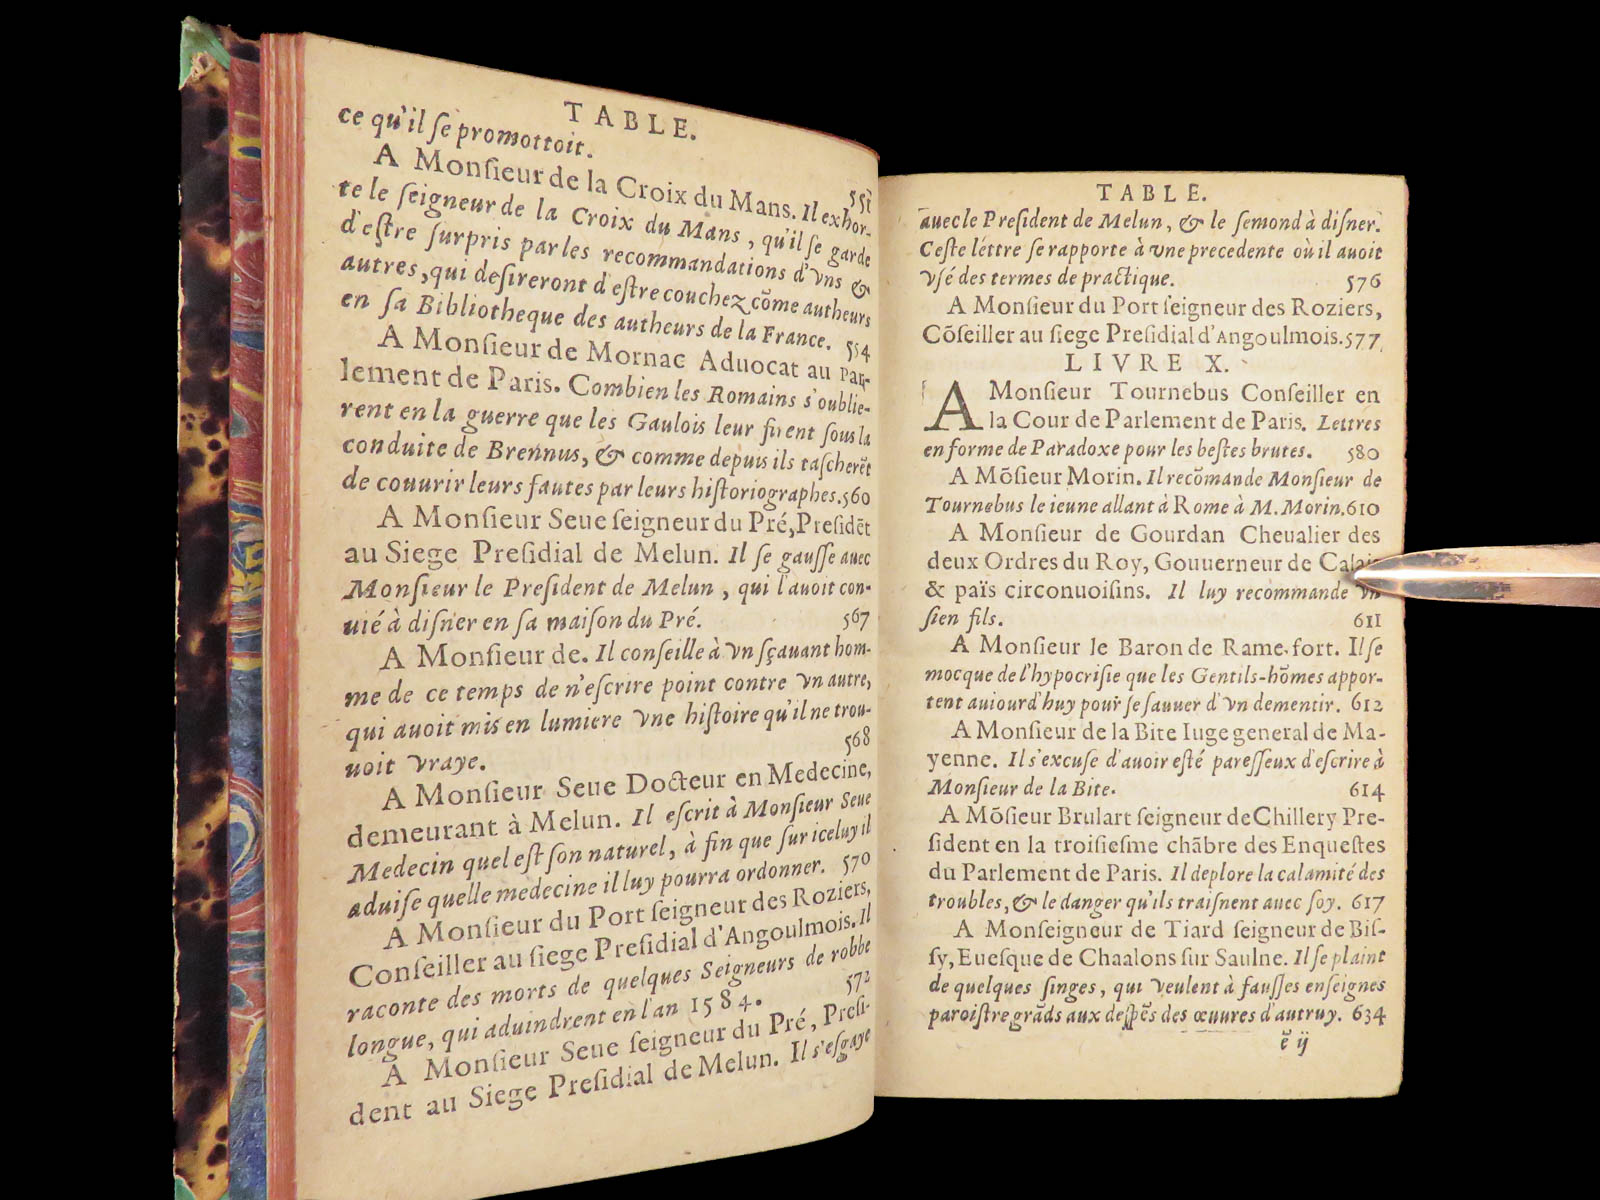 TABLE.
ce qu'il ſe promottoit.
A Monſieur de la Croix du Mans. Il exhor-
te le ſeigneur de la Croix du Mans, qu'il ſe garde
d'eſtre ſurpris par les recommandations d'vns &
autres, qui deſireront d'eſtre couchez cõme autheurs
en ſa Bibliotheque des autheurs de la France. 554
A Monſieur de Mornac Aduocat au Par-
lement de Paris. Combien les Romains s'oublie-
rent en la guerre que les Gaulois leur firent ſous la
conduite de Brennus, & comme depuis ils taſcherẽt
de couurir leurs fautes par leurs hiſtoriographes. 560
A Monſieur Seue ſeigneur du Pré, Preſidẽt
au Siege Preſidial de Melun. Il ſe gauſſe auec
Monſieur le Preſident de Melun, qui l'auoit con-
uié à diſner en ſa maiſon du Pré. 567
A Monſieur de. Il conſeille à vn ſçauant hom-
me de ce temps de n'eſcrire point contre vn autre,
qui auoit mis en lumiere vne hiſtoire qu'il ne trou-
uoit vraye. 568
A Monſieur Seue Docteur en Medecine,
demeurant à Melun. Il eſcrit à Monſieur Seue
Medecin quel eſt ſon naturel, à fin que ſur iceluy il
aduiſe quelle medecine il luy pourra ordonner. 570
A Monſieur du Port ſeigneur des Roziers,
Conſeiller au ſiege Preſidial d'Angoulmois. Il
raconte des morts de quelques Seigneurs de robbe
longue, qui aduindrent en l'an 1584. 572
A Monſieur Seue ſeigneur du Pré, Preſi-
dent au Siege Preſidial de Melun. Il s'eſgaye
TABLE.
auec le Preſident de Melun, & le ſemond à diſner.
Ceſte léttre ſe rapporte à vne precedente où il auoit
vſé des termes de practique. 576
A Monſieur du Port ſeigneur des Roziers,
Cõſeiller au ſiege Preſidial d'Angoulmois. 577
LIVRE X.
A Monſieur Tournebus Conſeiller en
la Cour de Parlement de Paris. Lettres
en forme de Paradoxe pour les beſtes brutes. 580
A Mõſieur Morin. Il recõmande Monſieur de
Tournebus le ieune allant à Rome à M. Morin. 610
A Monſieur de Gourdan Cheualier des
deux Ordres du Roy, Gouuerneur de Calais
& païs circonuoiſins. Il luy recommande vn
ſien fils. 611
A Monſieur le Baron de Rame-fort. Il ſe
mocque de l'hypocriſie que les Gentils-hõmes appor-
tent auiourd'huy pour ſe ſauuer d'vn dementir. 612
A Monſieur de la Bite Iuge general de Ma-
yenne. Il s'excuſe d'auoir eſté pareſſeux d'eſcrire à
Monſieur de la Bite. 614
A Mõſieur Brulart ſeigneur de Chillery Pre-
ſident en la troiſieſme chãbre des Enqueſtes
du Parlement de Paris. Il deplore la calamité des
troubles, & le danger qu'ils traiſnent auec ſoy. 617
A Monſeigneur de Tiard ſeigneur de Biſ-
ſy, Eueſque de Chaalons ſur Saulne. Il ſe plaint
de quelques ſinges, qui veulent à fauſſes enſeignes
paroiſtre grãds aux deſpẽs des œuures d'autruy. 634
ẽ ij